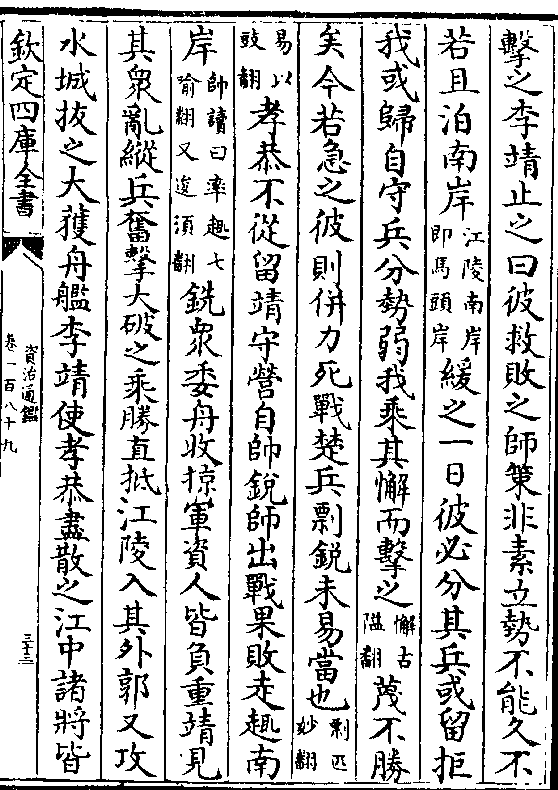 擊之李靖止之曰彼救敗之師策非素立勢不能久不
若且泊南岸江陵南岸即馬頭岸緩之一日彼必分其兵或留拒
我或歸自守兵分勢弱我乘其懈而擊之懈古隘翻蔑不勝
矣今若急之彼則併力死戰楚兵剽銳未易當也剽匹妙翻
易以豉翻孝恭不從留靖守營自帥銳師出戰果敗走趣南
岸帥讀曰率趣七喻翻又逡須翻銑衆委舟收掠軍資人皆負重靖見
其衆亂縱兵奮擊大破之乘勝直抵江陵入其外郭又攻
水城拔之大獲舟艦李靖使孝恭盡散之江中諸將皆
欽定四庫全書
資治通鑑
卷一百八十九
三十三